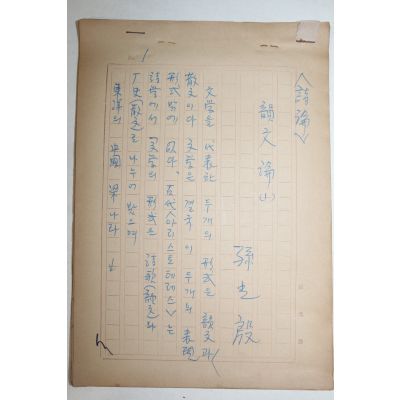 1
<詩論>
韻文論(上)
孫世殷
文学을 代表한 두개의 形式은 韻文과
散文이다 文学은 결국 이 두개의 表現
形式 밖에 없다. 古代<아리스토테레스>는
詩学에서 文学의 形式은 詩歌(韻文)와
历史(散文)로 나누어 봤으며
東洋의 中國 梁나라